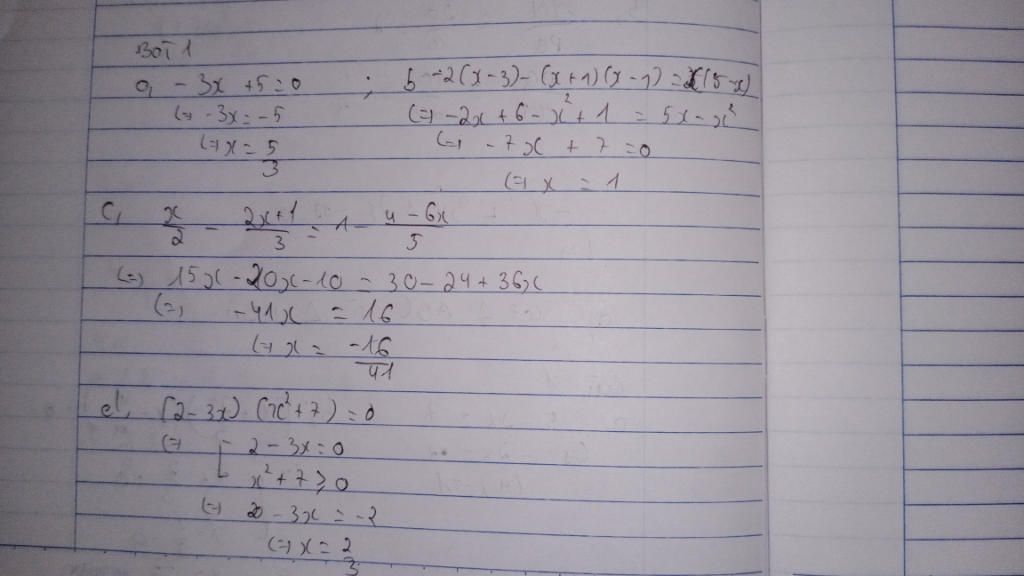 BÀI 1
a, -3x + 5 = 0 ; b -2(x-3) - (x+1)(x-1) = x(5-x)
(=) -3x = -5 (=) -2x + 6 - x² + 1 = 5x - x²
(=) x = 5/3 (=) -7x + 7 = 0
(=) x = 1
c, x/2 - (2x+1)/3 = 1 - (4-6x)/5
(=) 15x - 20x - 10 = 30 - 24 + 36x
(=) -41x = 16
(=) x = -16/41
d, (2-3x)(x²+7) = 0
(=) [ 2 - 3x = 0
x² + 7 ⩾ 0
(=) -3x = -2
(=) x = 2/3